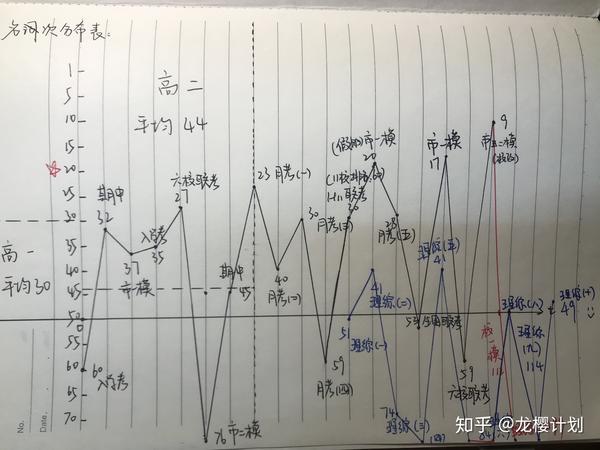 名词次分布表:
1
5
10
15
20
25
30
35
40
45
50
55
60
65
70
高二
平均44
高一
平均30
60
入学考
期中
32
37
市模
入学考
35
六校联考
27
76 市二模
期中
45
23 月考(一)
40
月考(二)
30
月考(三)
59
月考(四)
(假如)市一模
20
联考
30
28
月考(五)
市一模
17
59
六校联考
9
市二模
51
理综(一)
41
理综(二)
74
理综(三)
理综(五)
41
校一模
111
理综(八)
理综(九)
114
理综(十)
49
No.
Date.
知乎 @龙樱计划